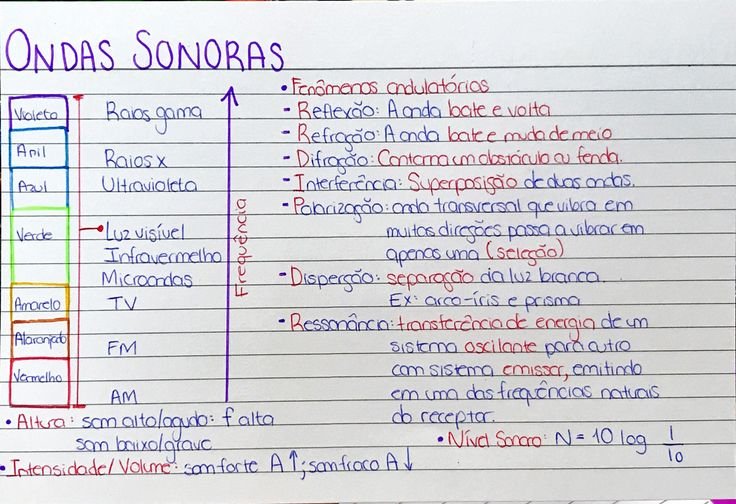 ONDAS SONORAS
Violeta
Anil
Azul
Verde
Amarelo
Alaranjado
Vermelho
Raios gama
Raios x
Ultravioleta
Luz visível
Infravermelho
Microondas
TV
FM
AM
Frequência
• Fenômenos ondulatórios
- Reflexão: A onda bate e volta
- Refração: A onda bate e muda de meio
- Difração: Contorna um obstáculo ou fenda.
- Interferência: Superposição de duas ondas.
- Polarização: onda transversal que vibra em
muitas direções passa a vibrar em
apenas uma (seleção)
- Disperção: separação da luz branca.
Ex: arco-íris e prisma
- Ressonância: transferência de energia de um
sistema oscilante para outro
com sistema emissor, emitindo
em uma das frequências naturais
do receptor.
• Altura: som alto/agudo: f alta
som baixo/grave
• Nível Sonoro: N = 10 log I/Io
• Intensidade/Volume: som forte A↑; som fraco A↓